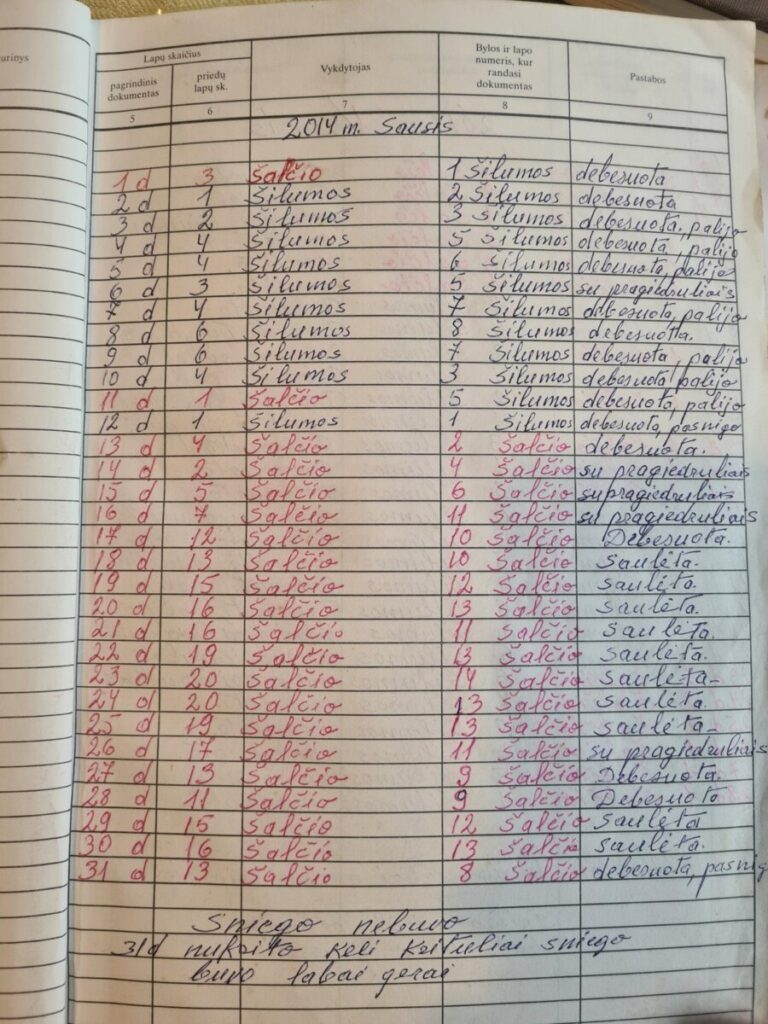 urinys
Lapų skaičius
pagrindinis dokumentas
priedų lapų sk.
Vykdytojas
Bylos ir lapo numeris, kur randasi dokumentas
Pastabos
5 6 7 8 9
2014 m. Sausis
1 d 3 šalčio 1 šilumos debesuota
2 d 1 šilumos 2 šilumos debesuota
3 d 2 šilumos 3 šilumos debesuota, palijo
4 d 4 šilumos 5 šilumos debesuota, palijo
5 d 4 šilumos 6 šilumos debesuota, palijo
6 d 3 šilumos 5 šilumos su pragiedruliais
7 d 4 šilumos 7 šilumos debesuota, palijo
8 d 6 šilumos 8 šilumos debesuota.
9 d 6 šilumos 7 šilumos debesuota, palijo
10 d 4 šilumos 3 šilumos debesuota, palijo
11 d 1 šalčio 5 šilumos debesuota, palijo
12 d 1 šilumos 1 šilumos debesuota, pasnigo
13 d 4 šalčio 2 šalčio debesuota.
14 d 2 šalčio 4 šalčio su pragiedruliais
15 d 5 šalčio 6 šalčio su pragiedruliais
16 d 7 šalčio 11 šalčio su pragiedruliais
17 d 12 šalčio 10 šalčio Debesuota.
18 d 13 šalčio 10 šalčio saulėta.
19 d 15 šalčio 12 šalčio saulėta.
20 d 16 šalčio 13 šalčio saulėta.
21 d 16 šalčio 11 šalčio saulėta.
22 d 19 šalčio 13 šalčio saulėta.
23 d 20 šalčio 14 šalčio saulėta-
24 d 20 šalčio 13 šalčio saulėta.
25 d 19 šalčio 13 šalčio saulėta-
26 d 17 šalčio 11 šalčio su pragiedruliais
27 d 13 šalčio 9 šalčio Debesuota.
28 d 11 šalčio 9 šalčio Debesuota
29 d 15 šalčio 12 šalčio saulėta
30 d 16 šalčio 13 šalčio saulėta.
31 d 13 šalčio 8 šalčio debesuota, pasnig
Sniego nebuvo
31d nukrito keli krituliai sniego
buvo labai gerai